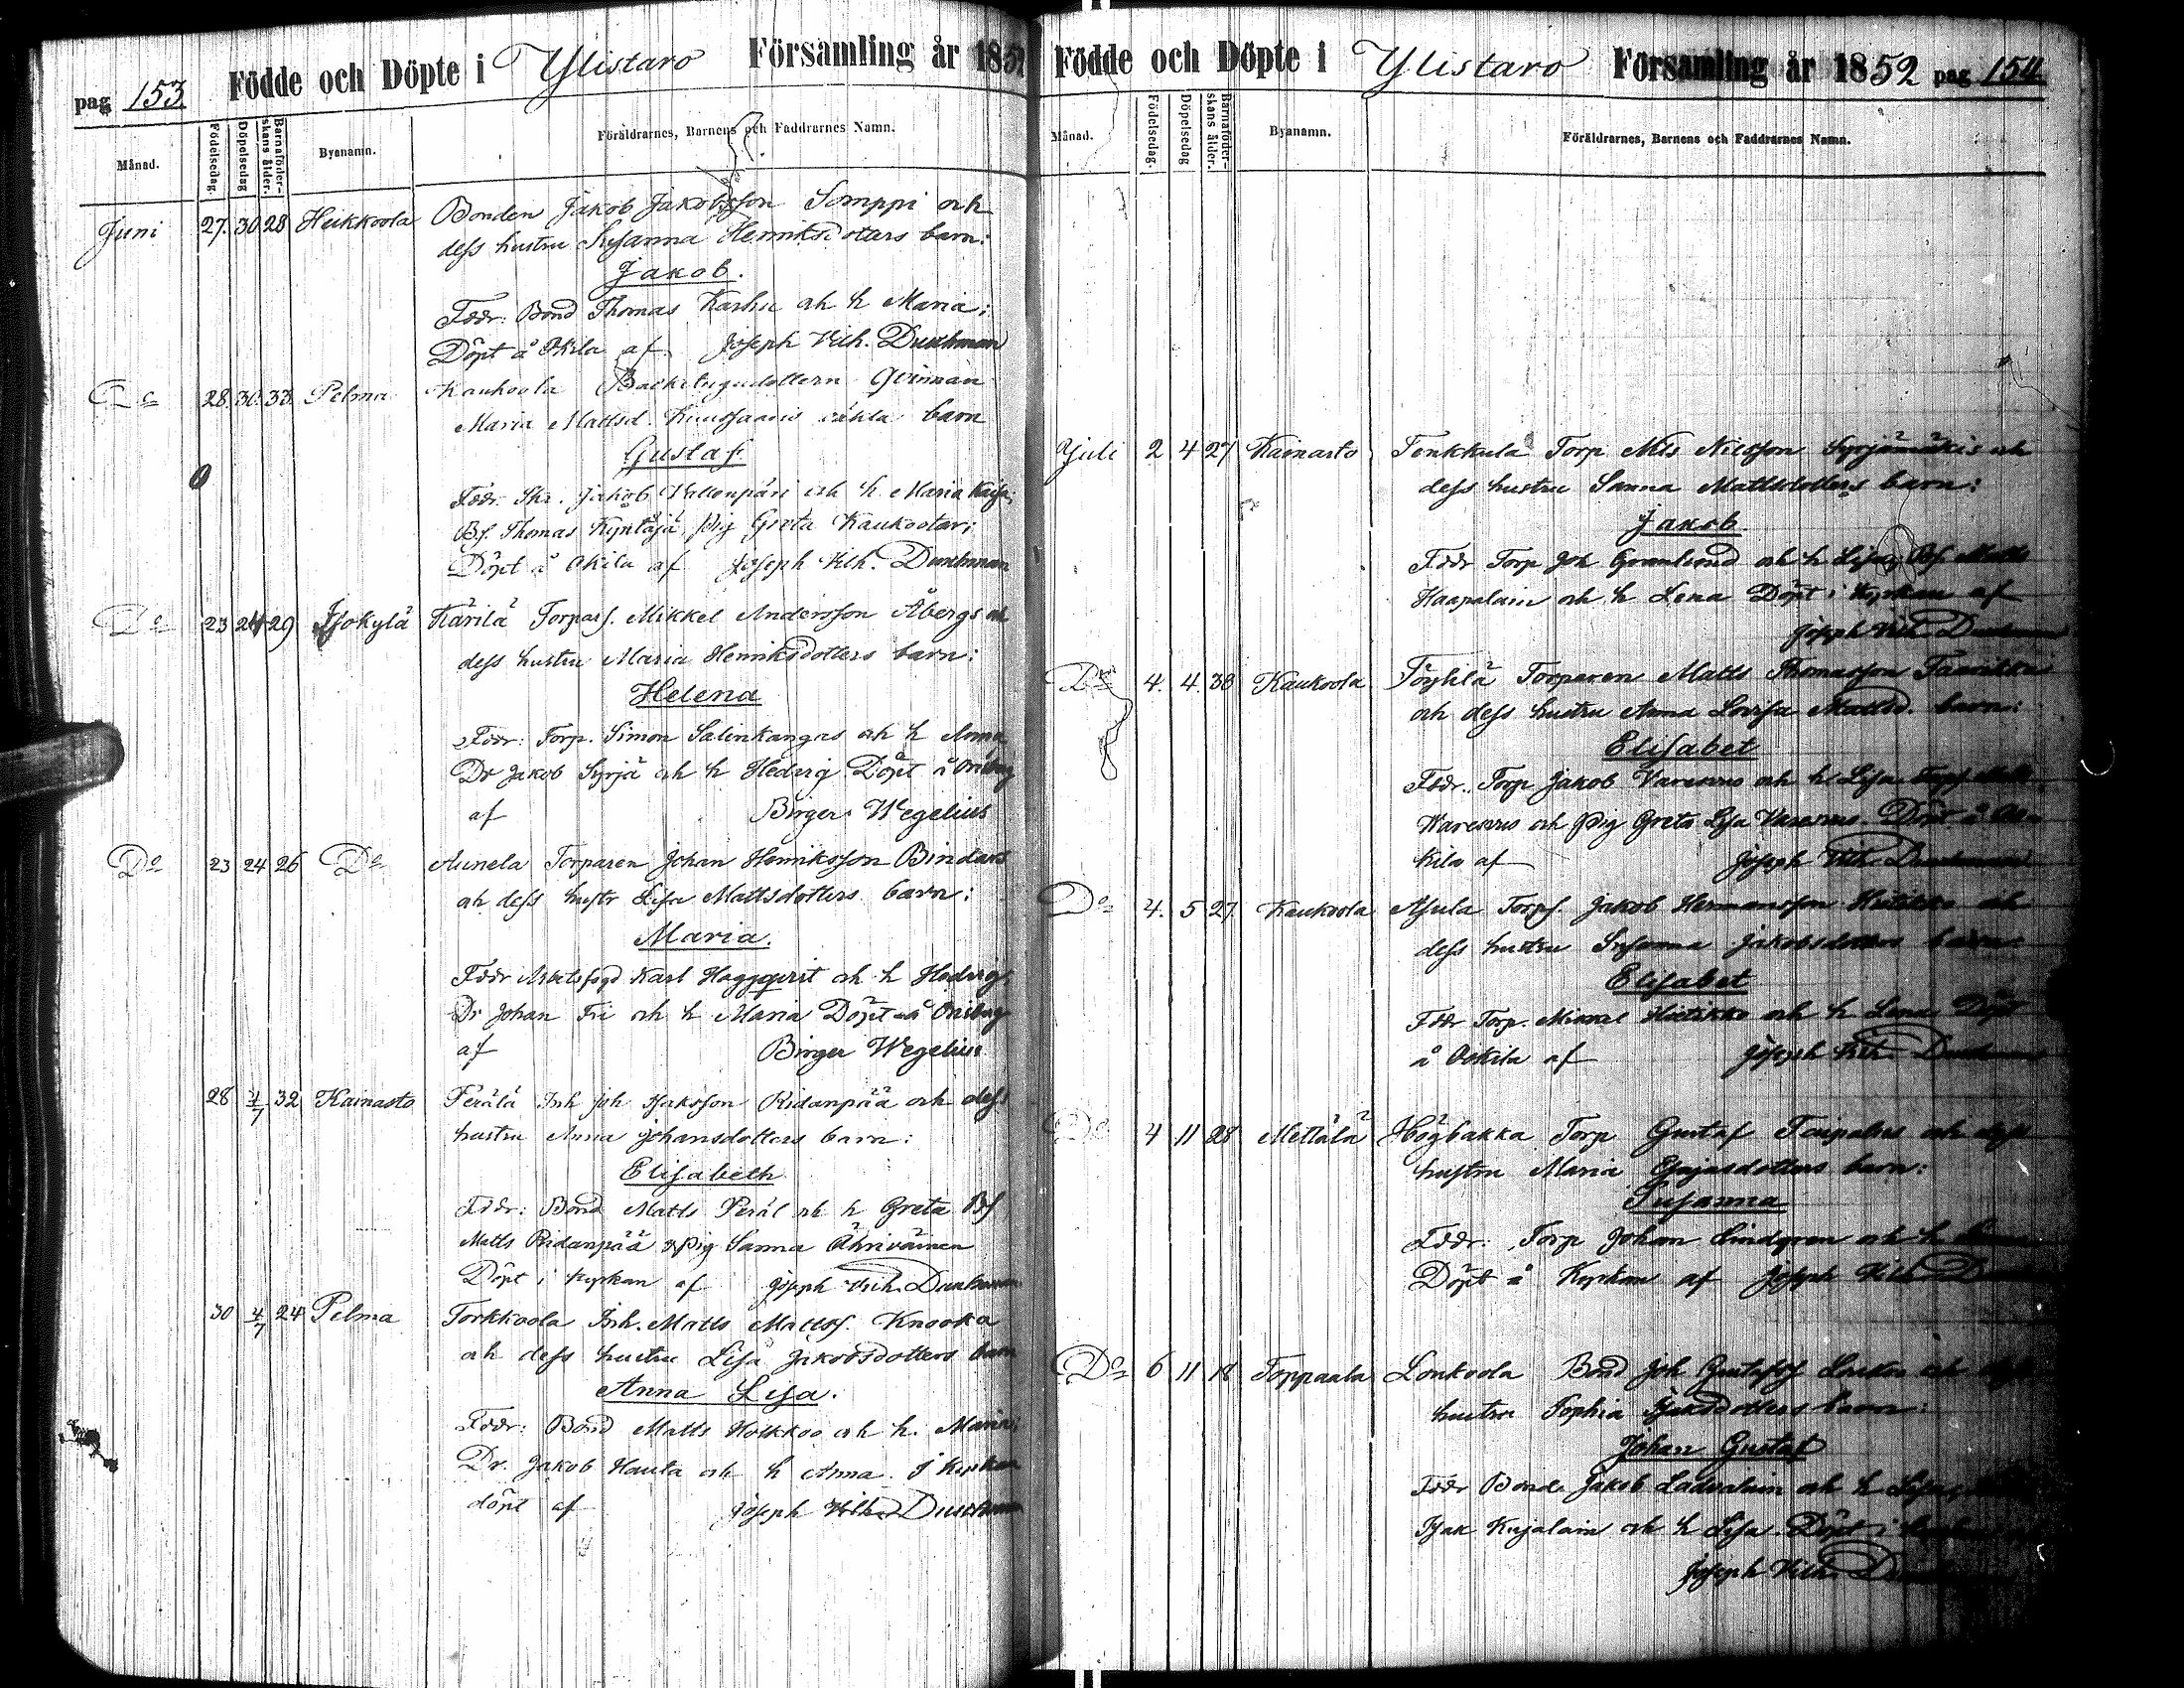 pag 153 Födde och Döpte i Ylistaro Församling år 1852
Månad. Födelsedag. Döpelsedag Barnaföderskans ålder. Byanamn. Föräldrarnes, Barnens och Faddrarnes Namn.
Juni 27. 30 28 Heikkoola Bonden Jakob Jakobsson Somppi och
dess hustru Susanna Henriksdotters barn:
Jakob.
Fddr: Bond Thomas Karhu och h Maria;
Döpt å Okila af Joseph Vilh. Durchman
Do 28. 30. 33. Pelma Kaukoola Backstugudottern Qvinnan
Maria Mattsd. barn
Gustaf
Fddr. Jakob och h. Maria Kajsa,
Bs. Thomas Kyntäjä, Pig Greta Kaukootar;
Döpt å Okila af Joseph Vilh. Durchman
Do 23 24 29 Isokylä Kärilä Torpars. Mikkel Andersson Åbergs och
dess hustru Maria Henriksdotters barn:
Helena
Fddr: Torp. Simon Salinkangas och h Anna
Dr Jakob Syrjä och h Hedvig Döpt å Orisberg
af Birger Wegelius
Do 23 24 26 Do Aunela Torparen Johan Henriksson Bindars
och dess hustr Lisa Mattsdotters barn:
Maria.
Fddr Arbetsfogd Karl Haggqvist och h Hedvig,
Dr Johan Fri och h Maria Döpt å Orisberg
af Birger Wegelius
28 4/7 32 Kainasto Perälä Inh Joh Isaksson Ridanpää och dess
hustru Anna Johansdotters barn:
Elisabeth
Fddr: Bond Matts Peräl och h Greta Bs
Matts Ridanpää Pig Sanna Ähriväinen
Döpt i kyrkan af Joseph Vilh. Durchman
30 4/7 24 Pelma Torkkoola Inh. Matts Mattss. Knooka
och dess hustru Lisa Jakobsdotters barn
Anna Lisa.
Fddr: Bond Matts Kotkkoo och h. Maria,
Dr. Jakob Hauta och h Anna. I kyrkan
döpt af Joseph Vilh. Durchman
Födde och Döpte i Ylistaro Församling år 1852 pag 154
Månad. Födelsedag. Döpelsedag Barnaföderskans ålder. Byanamn. Föräldrarnes, Barnens och Faddrarnes Namn.
Juli 2 4 27 Kainasto Tenkkula Torp. Nils Nilsson Syrjämäkis och
dess hustru Sanna Mattsdotters barn:
Jakob
Fddr Torp Joh Granlund och h Lisa, Bs. Matts
Haapalain och h Lena Döpt i Kyrkan af
Joseph Vilh Durchman
Do 4. 4. 30 Kaukoola Töyhlä Torparen Matts Thomasson
och dess hustru Anna Lovisa Mattsd. barn:
Elisabet
Fddr. Torp Jakob Varesvuo och h Lisa
Waresvuo och Pig Greta Lisa Varesvuo. Döpt å Os-
kila af Joseph Vilh Durchman
Do 4. 5 27 Kaukoola Asula Torps. Jakob Hermansson Hietikko och
dess hustru Susanna Jakobsdotters barn
Elisabet
Fddr Torp. Mikkel Hietikko och h Lena Döpt
å Oskila af Joseph Vilh Durchman
Do 4 11 28 Mettälä Högbakka Torp Gustaf Taipalus och dess
hustru Maria Esajasdotters barn:
Susanna
Fddr: Torp Johan Lindgren och h
Döpt å Kyrkan af Joseph Vilh
Do 6 11 18 Toppaala Lonkoola Bond Joh Gustafss och
hustru Sophia Isaksdotters barn:
Johan Gustaf
Fddr Bonde Jakob Laduslain och h Lisa,
Isak Kujalain och h Lisa. Döpt i
Joseph Vilh